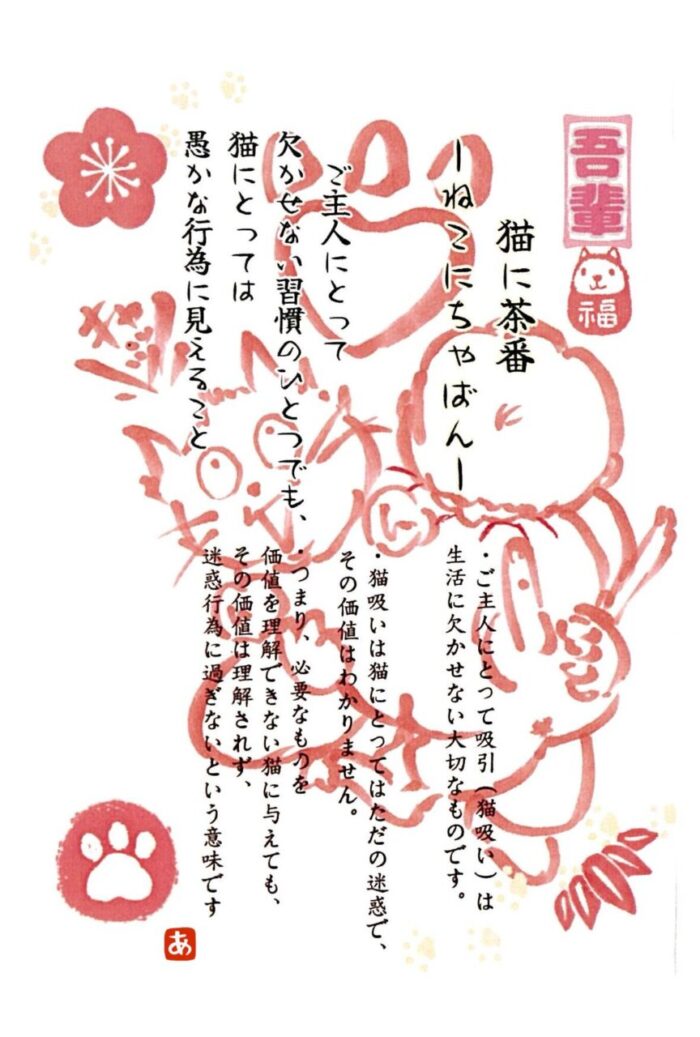 吾輩
福
猫に茶番
ーねこにちゃばんー
ご主人にとって
欠かせない習慣のひとつでも、
猫にとっては
愚かな行為に見えること
・ご主人にとって吸引（猫吸い）は
生活に欠かせない大切なものです。
・猫吸いは猫にとってはただの迷惑で、
その価値はわかりません。
・つまり、必要なものを
価値を理解できない猫に与えても、
その価値は理解されず、
迷惑行為に過ぎないという意味です
あ